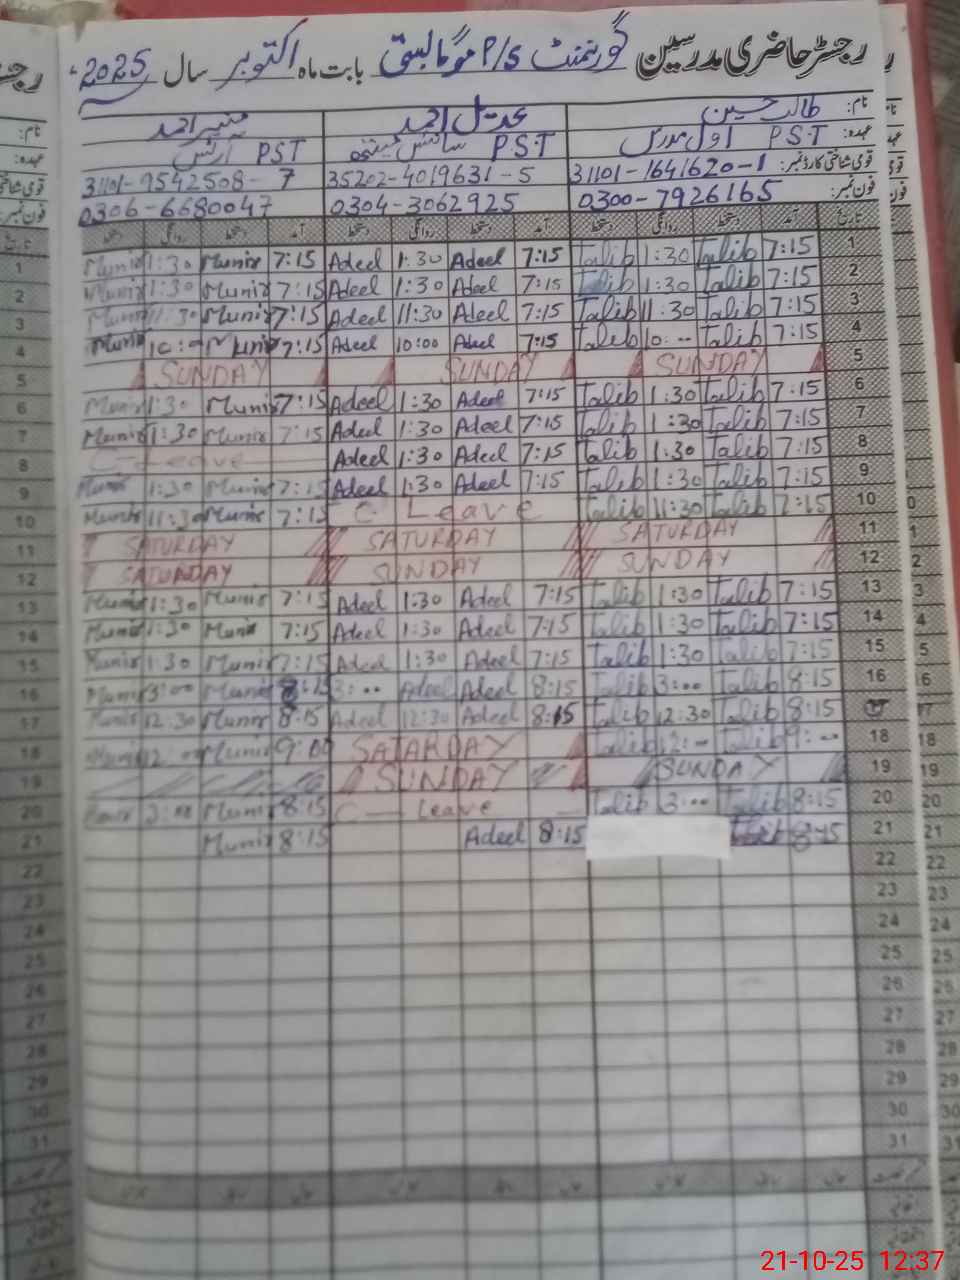 رجسٹر حاضری مدرسین گورنمنٹ P/S موگا لبتی بابت ماہ اکتوبر سال 2025ء
نام: طالب حسین عدیل احمد منیر احمد
عہدہ: PST اول مدرس PST سائنس PST آرٹس
قومی شناختی کارڈ نمبر: 31101-1641620-1 35202-4019631-5 31101-9542508-7
فون نمبر: 0300-7926165 0304-3062925 0306-6680047
تاریخ آمد دستخط روانگی دستخط آمد دستخط روانگی دستخط آمد دستخط روانگی دستخط
1 Munir 1:30 Munir 7:15 Adeel 1:30 Adeel 7:15 Talib 1:30 Talib 7:15 1
2 Munir 1:30 Munir 7:15 Adeel 1:30 Adeel 7:15 Talib 1:30 Talib 7:15 2
3 Munir 11:30 Munir 7:15 Adeel 11:30 Adeel 7:15 Talib 11:30 Talib 7:15 3
4 Munir 10:00 Munir 7:15 Adeel 10:00 Adeel 7:15 Talib 10:-- Talib 7:15 4
5 SUNDAY SUNDAY SUNDAY 5
6 Munir 1:30 Munir 7:15 Adeel 1:30 Adeel 7:15 Talib 1:30 Talib 7:15 6
7 Munir 1:30 Munir 7:15 Adeel 1:30 Adeel 7:15 Talib 1:30 Talib 7:15 7
8 C-Leave Adeel 1:30 Adeel 7:15 Talib 1:30 Talib 7:15 8
9 Munir 1:30 Munir 7:15 Adeel 1:30 Adeel 7:15 Talib 1:30 Talib 7:15 9
10 Munir 11:30 Munir 7:15 C Leave Talib 11:30 Talib 7:15 10
11 SATURDAY SATURDAY SATURDAY 11
12 SATURDAY SUNDAY SUNDAY 12
13 Munir 1:30 Munir 7:15 Adeel 1:30 Adeel 7:15 Talib 1:30 Talib 7:15 13
14 Munir 1:30 Munir 7:15 Adeel 1:30 Adeel 7:15 Talib 1:30 Talib 7:15 14
15 Munir 1:30 Munir 7:15 Adeel 1:30 Adeel 7:15 Talib 1:30 Talib 7:15 15
16 Munir 3:00 Munir 8:15 3:00 Adeel Adeel 8:15 Talib 3:00 Talib 8:15 16
17 Munir 12:30 Munir 8:15 Adeel 12:30 Adeel 8:15 Talib 12:30 Talib 8:15
18 Munir 12:00 Munir 9:00 SATARDAY Talib 12:-- Talib 9:-- 18
19 SUNDAY SUNDAY 19
20 Munir 2:00 Munir 8:15 C — Leave — Talib 3:00 Talib 8:15 20
21 Munir 8:15 Adeel 8:15 Talib 8:15 21
22 22
23 23
24 24
25 25
26 26
27 27
28 28
29 29
30 30
31 31
21-10-25 12:37